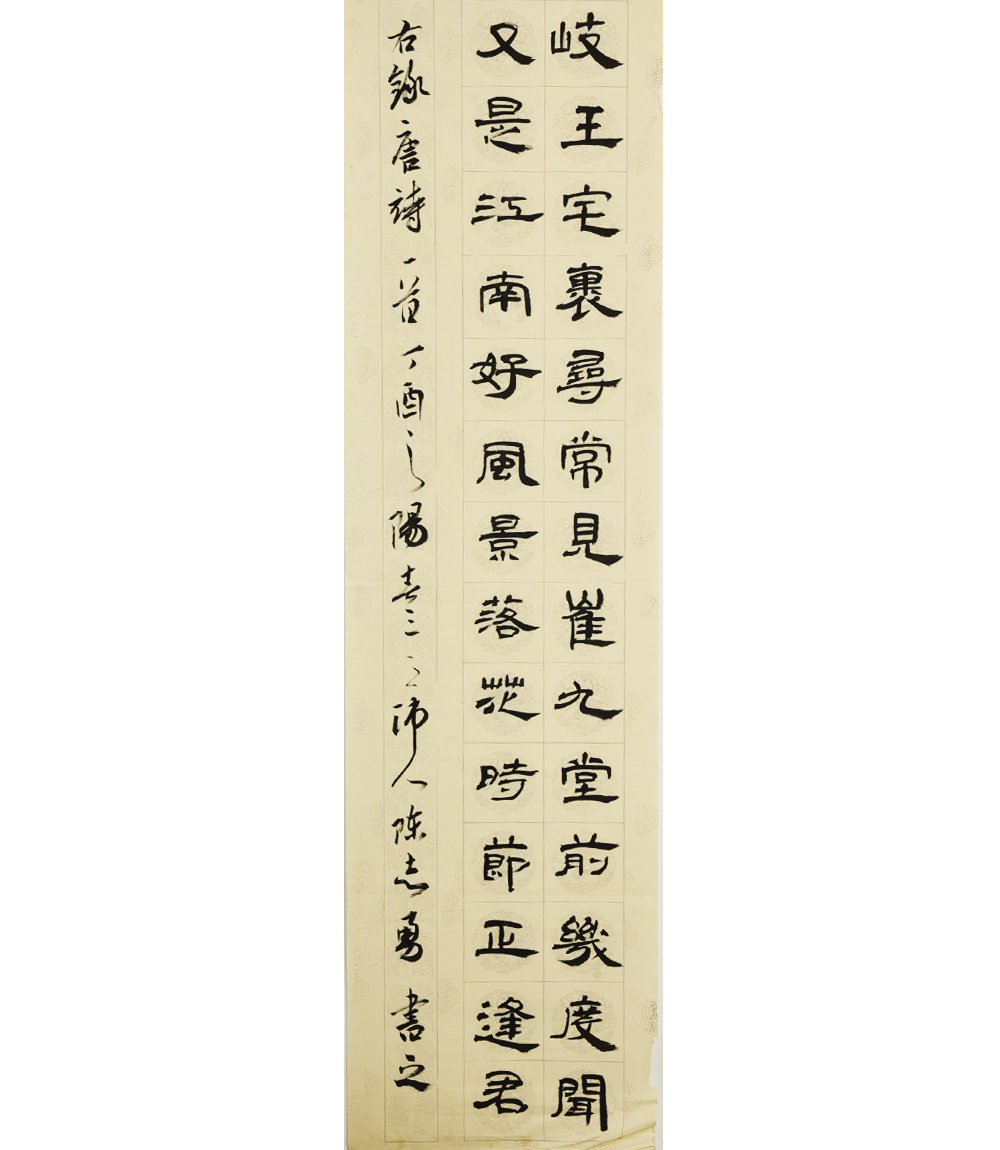 岐王宅裏尋常見崔九堂前幾度聞
又是江南好風景落花時節正逢君
右錄唐詩一首丁酉之陽春三之沛人陈志勇書之